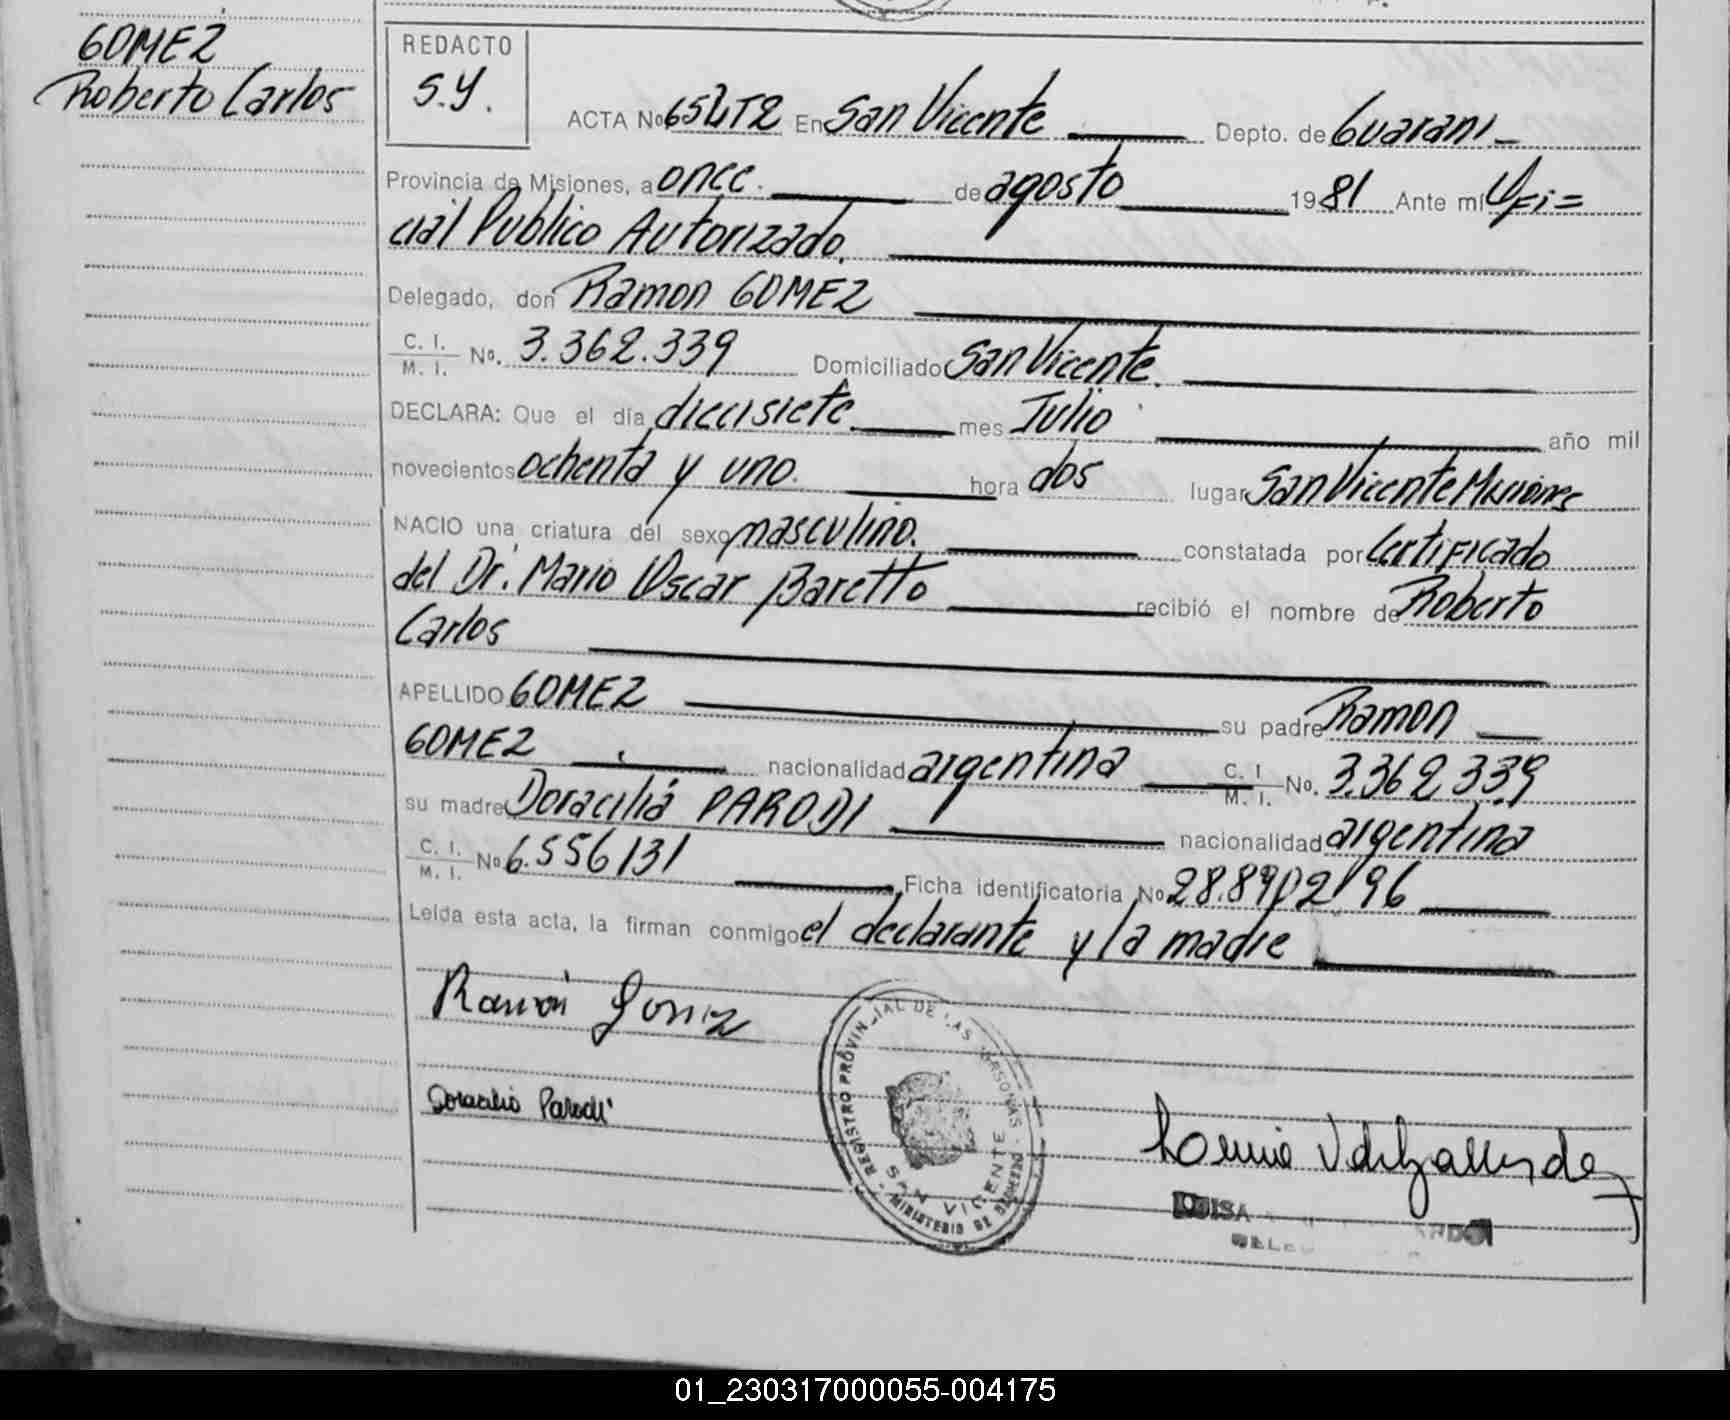 GOMEZ
Roberto Carlos
REDACTO
S.Y.
ACTA No 654T2 En San Vicente Depto. de Guarani
Provincia de Misiones, a once. de agosto 1981 Ante mí Ofi=
cial Público Autorizado.
Delegado, don Ramon GOMEZ
C. I.
M. I. No. 3.362.339 Domiciliado San Vicente.
DECLARA: Que el día diecisiete mes Julio año mil
novecientos ochenta y uno. hora dos lugar San Vicente Misiones
NACIO una criatura del sexo masculino. constatada por Certificado
del Dr. Mario Oscar Baretto recibió el nombre de Roberto
Carlos
APELLIDO GOMEZ su padre Ramon
GOMEZ nacionalidad argentina C. I. M. I. No. 3.362.339
su madre Doracilia PARODI nacionalidad argentina
C. I.
M. I. No 6.556131 Ficha identificatoria No 28.8902196
Leída esta acta, la firman conmigo el declarante y la madre
Ramón Gomez
Doracilia Parodi
REGISTRO PROVINCIAL DE LAS PERSONAS
SAN VICENTE
MINISTERIO DE
LUISA
01_230317000055-004175